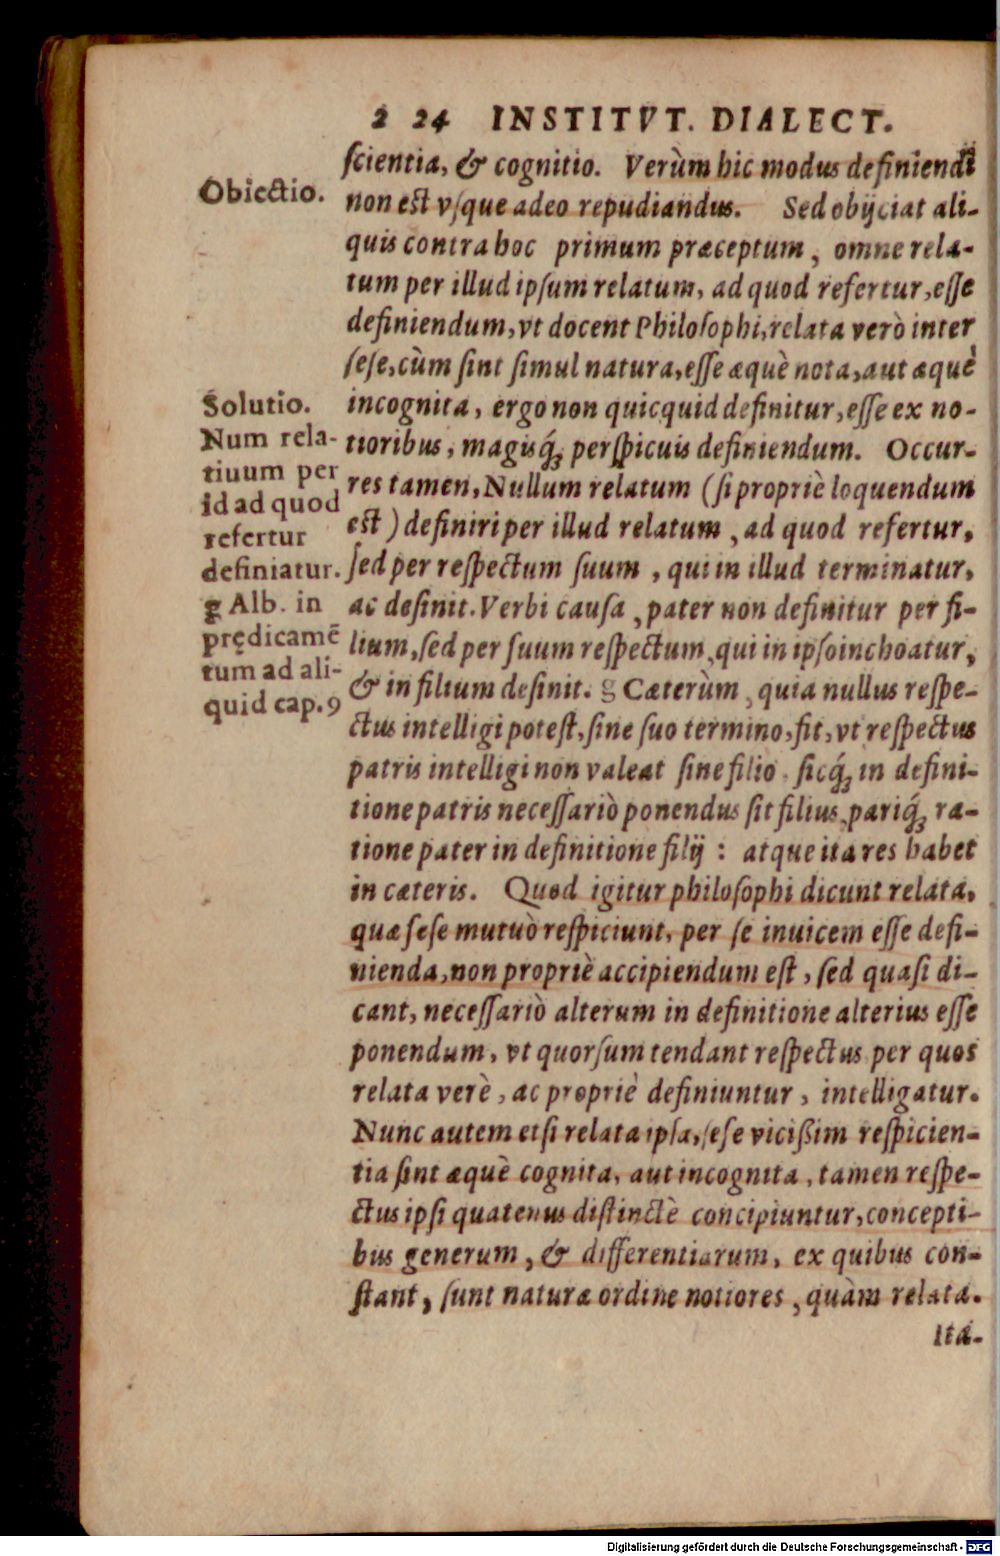 2 24 INSTITVT. DIALECT.
scientia, & cognitio. Verùm hic modus definiendi
non est vsque adeo repudiandus. Sed obijciat ali-
quis contra hoc primum præceptum, omne rela-
tum per illud ipsum relatum, ad quod refertur, esse
definiendum, vt docent Philosophi, relata verò inter
sese, cùm sint simul natura, esse æquè nota, aut æquè
incognita, ergo non quicquid definitur, esse ex no-
tioribus, magisq́; perspicuis definiendum. Occur-
res tamen, Nullum relatum (si propriè loquendum
est) definiri per illud relatum, ad quod refertur,
sed per respectum suum, qui in illud terminatur,
ac desinit. Verbi causa, pater non definitur per fi-
lium, sed per suum respectum, qui in ipso inchoatur,
& in filium desinit. g Cæterùm, quia nullus respe-
ctus intelligi potest, sine suo termino, fit, vt respectus
patris intelligi non valeat sine filio, sicq́; in defini-
tione patris necessariò ponendus sit filius, pariq́; ra-
tione pater in definitione filij : atque ita res habet
in cæteris. Quod igitur philosophi dicunt relata,
quæ sese mutuò respiciunt, per se inuicem esse defi-
nienda, non propriè accipiendum est, sed quasi di-
cant, necessariò alterum in definitione alterius esse
ponendum, vt quorsum tendant respectus per quos
relata verè, ac propriè definiuntur, intelligatur.
Nunc autem etsi relata ipsa, sese vicißim respicien-
tia sint æquè cognita, aut incognita, tamen respe-
ctus ipsi quatenus distinctè concipiuntur, concepti-
bus generum, & differentiarum, ex quibus con-
stant, sunt naturæ ordine notiores, quàm relata.
Ita-
Obiectio.
Solutio.
Num rela-
tiuum per
id ad quod
refertur
definiatur.
g Alb. in
prędicamē
tum ad ali-
quid cap. 9
Digitalisierung gefördert durch die Deutsche Forschungsgemeinschaft - DFG